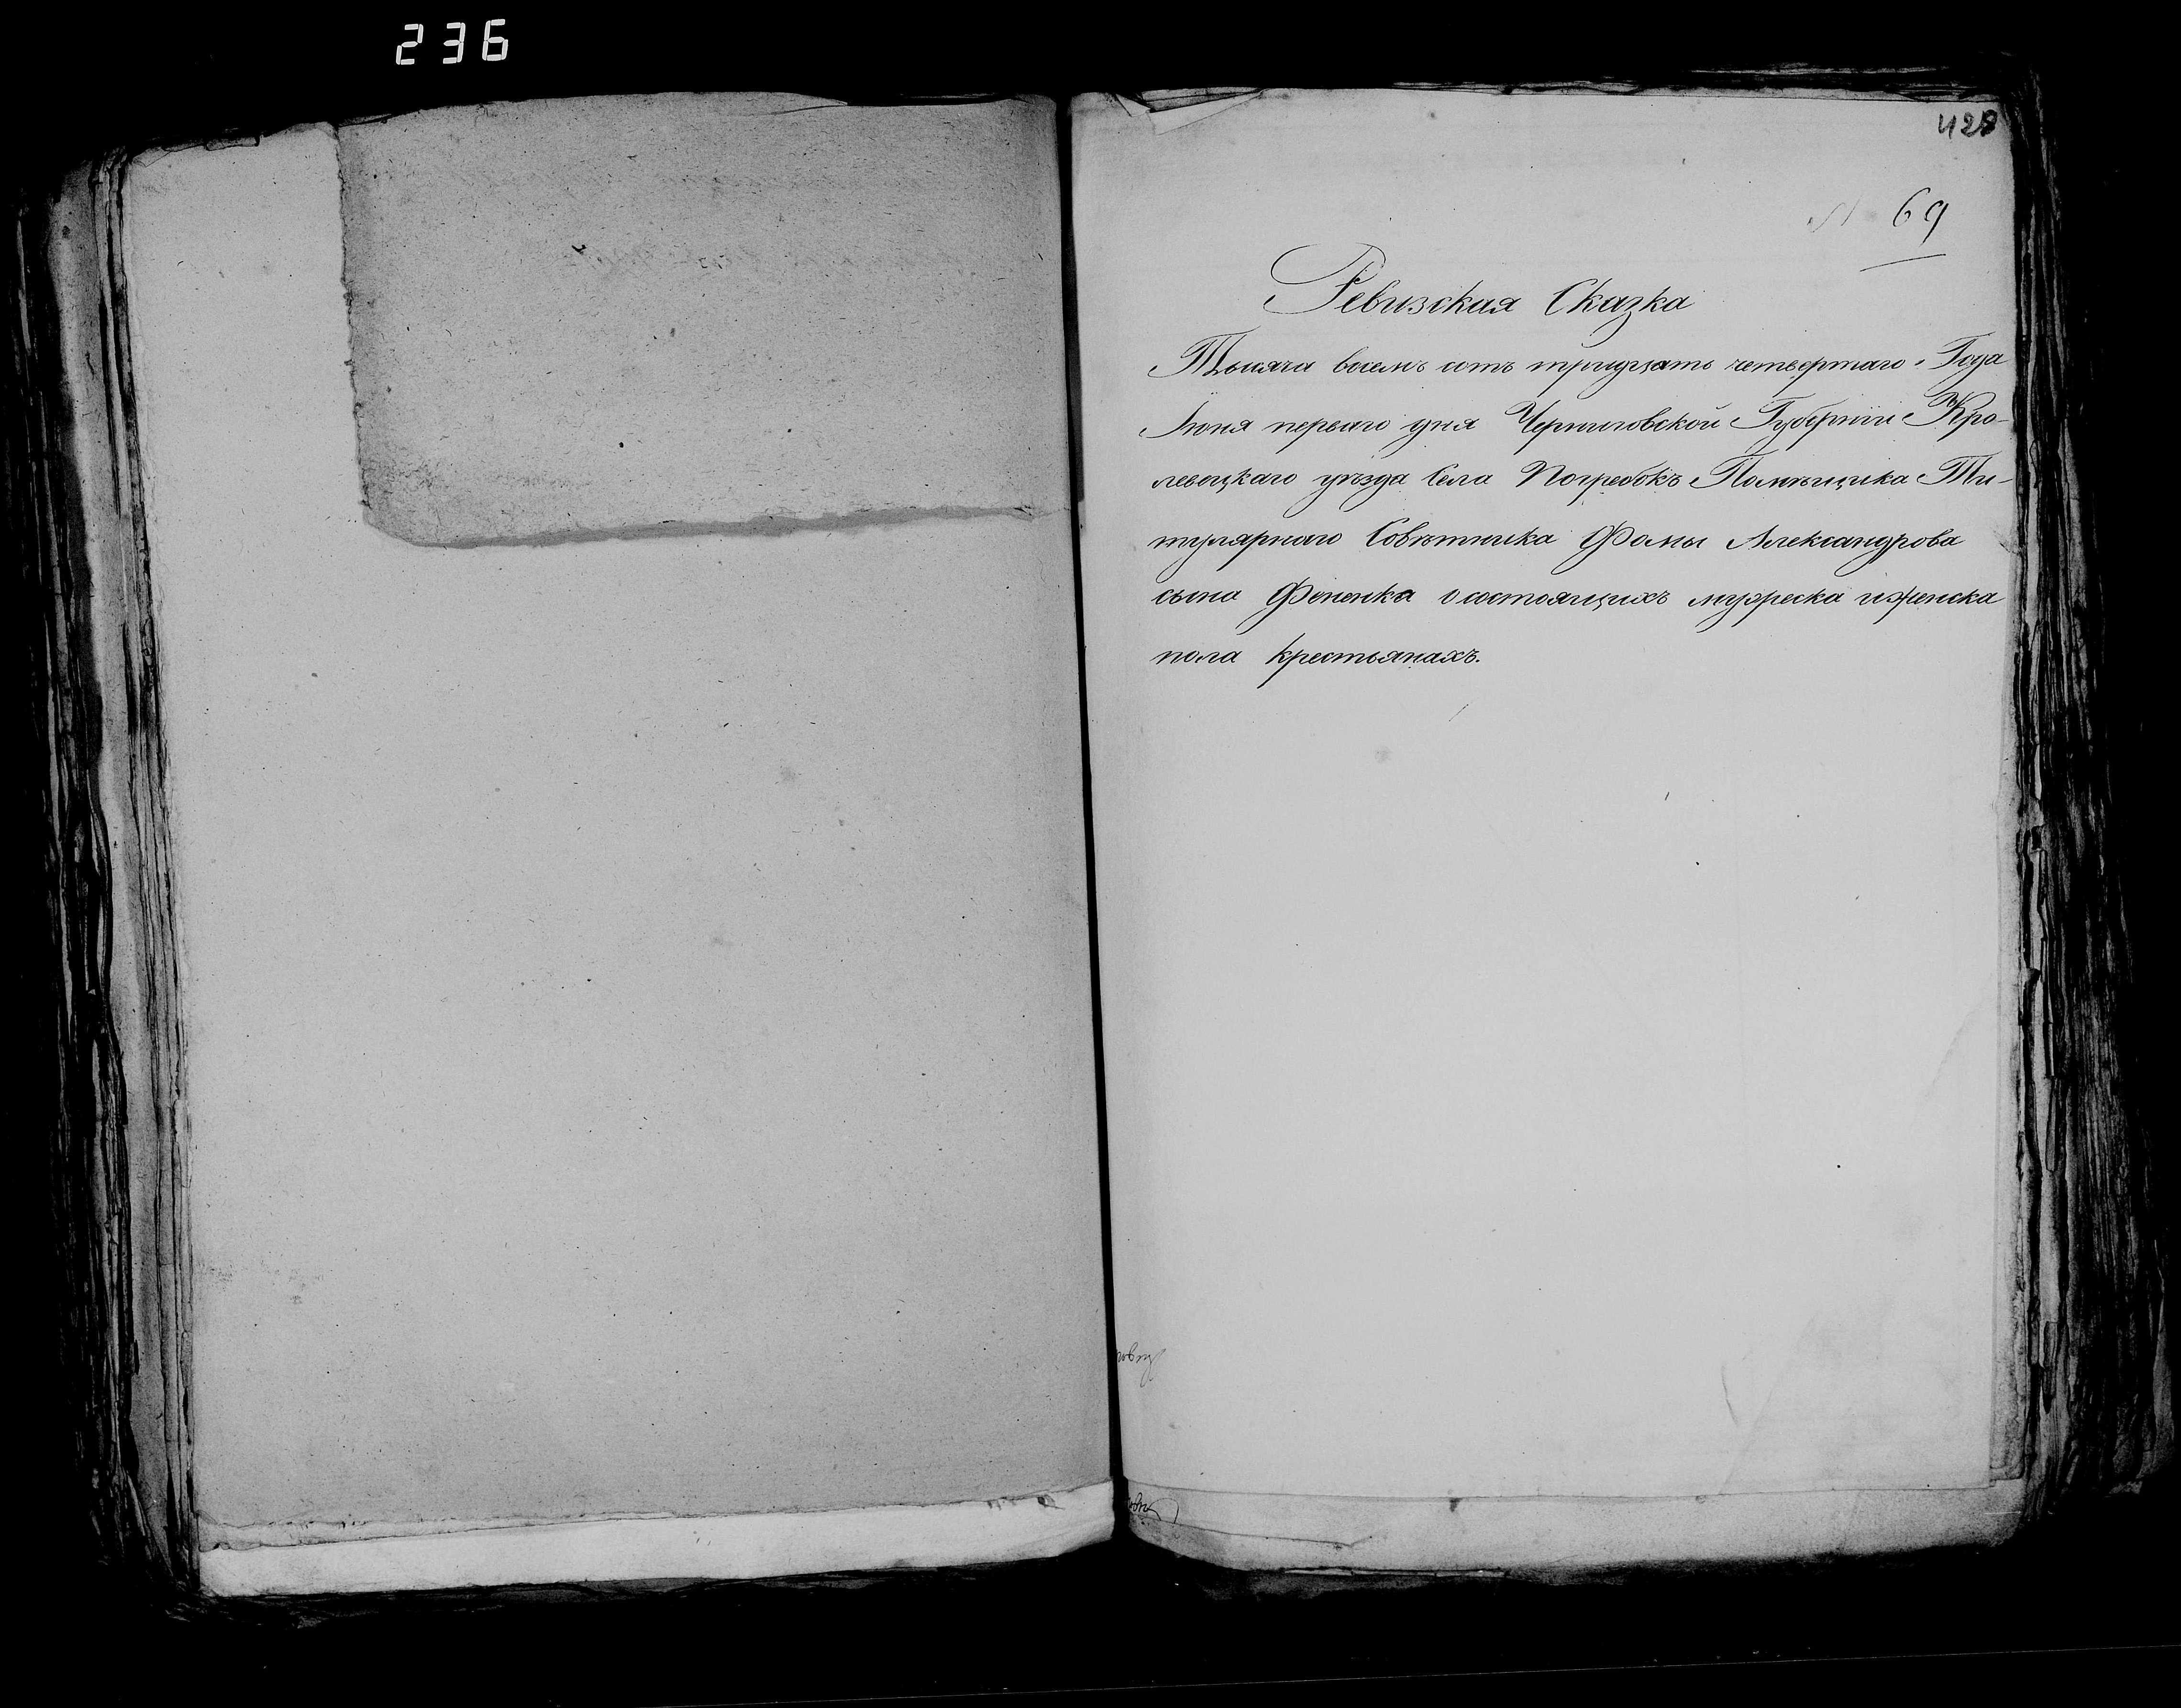 236
428
№ 69
Ревизская Сказка
Тысяча восемь сотъ тридцать четвертаго Года
Іюня перваго дня Черниговской Губерніи Кро-
левецкаго уѣзда Села Погребокъ Помѣщика Ти-
тулярнаго Совѣтника Фомы Александрова
сына Фененка о состоящихъ мужеска и женска
пола крестьянахъ.